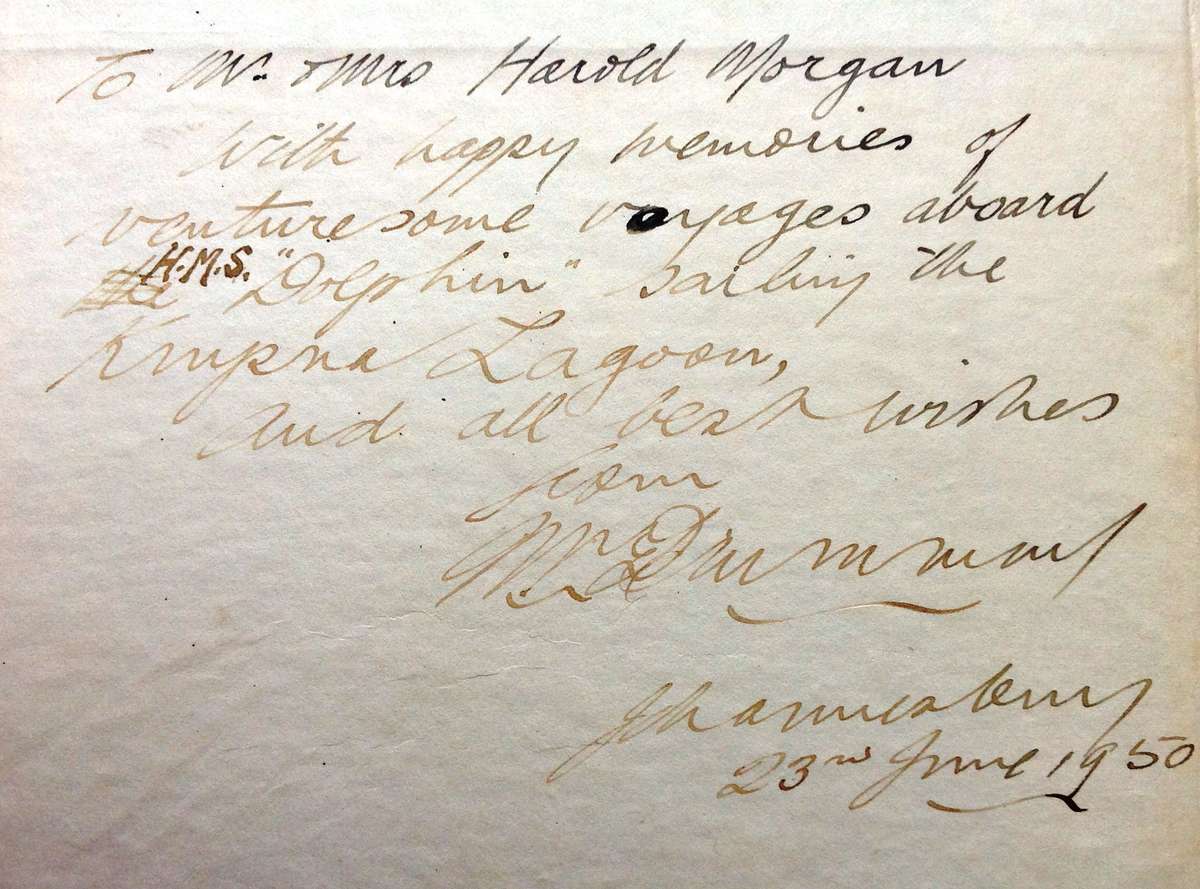 To Mr. & Mrs Harold Morgan
with happy memories of
venturesome voyages aboard
the H.M.S. "Dolphin" sailing the
Knysna Lagoon,
and all best wishes
from
Drummond
Johannesburg
23rd June 1950